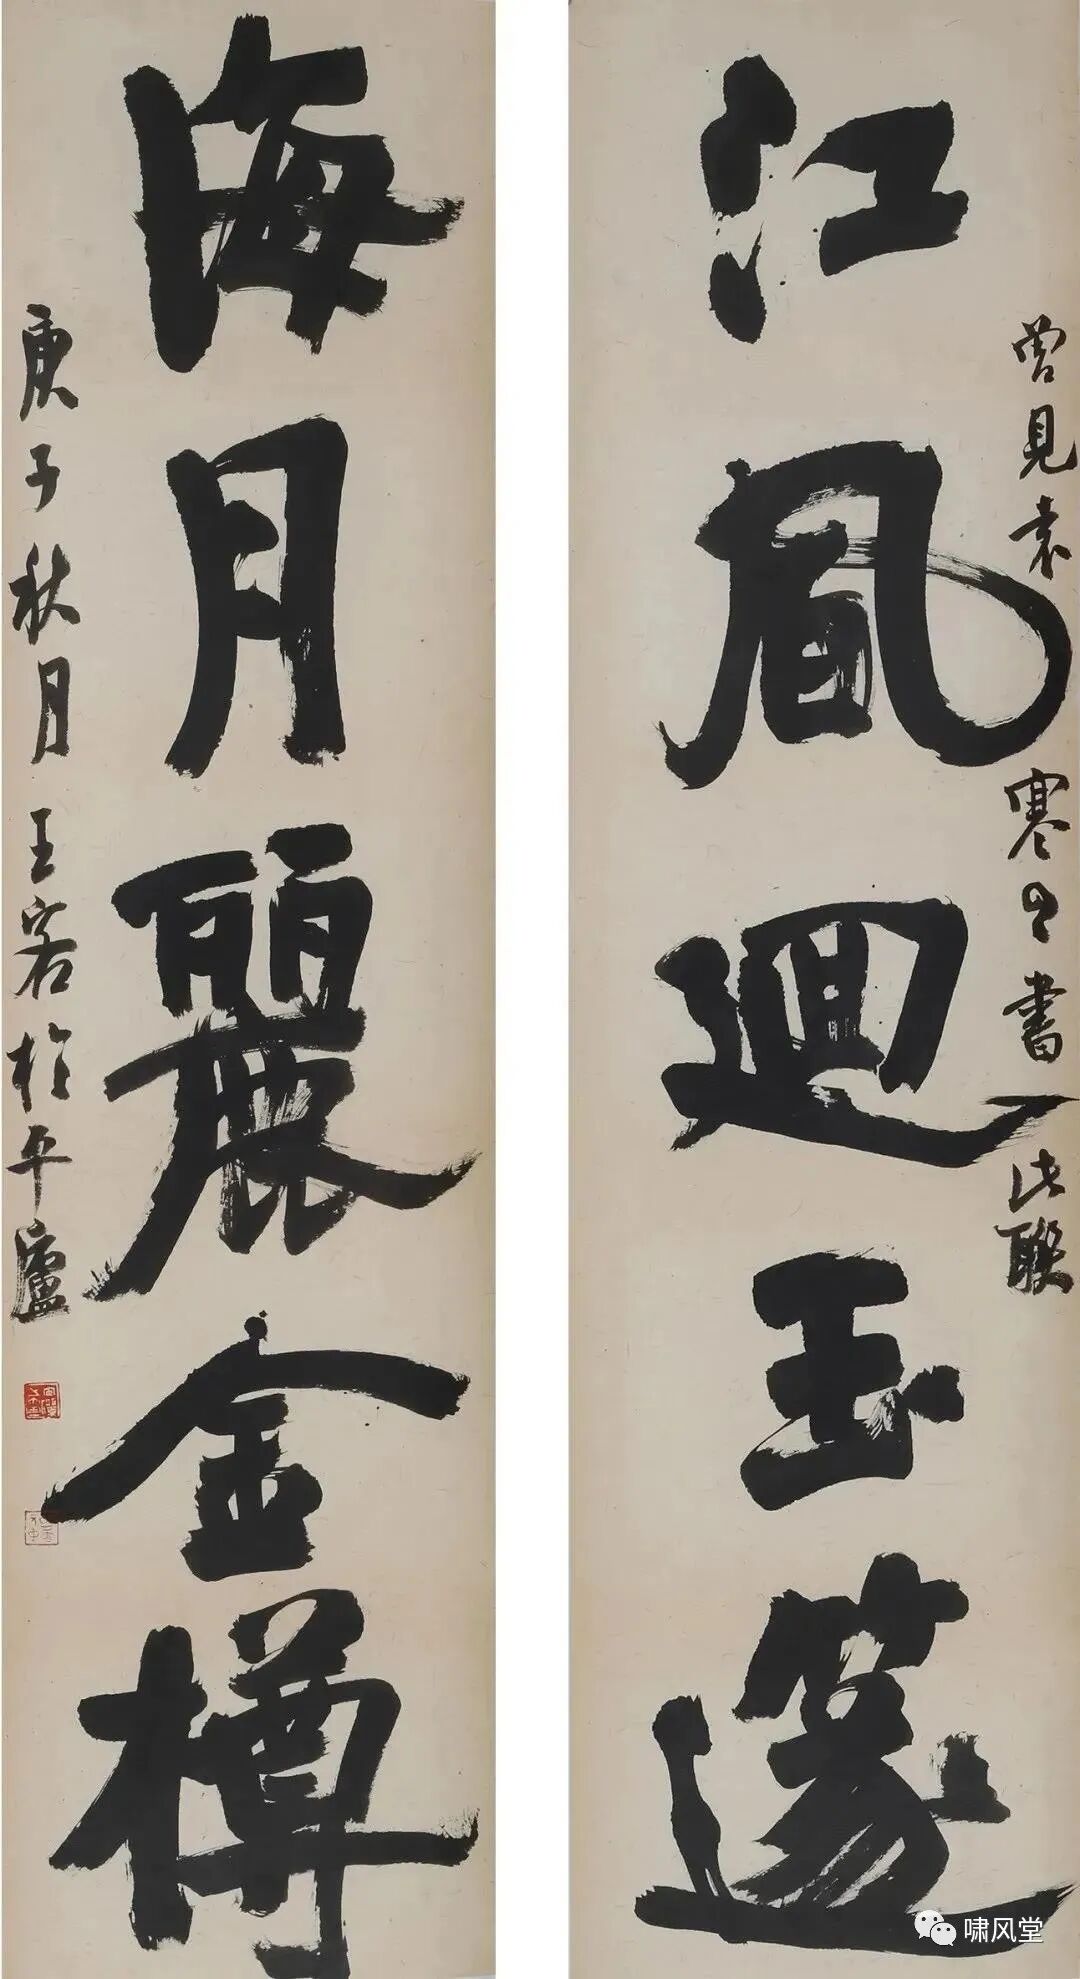 江風迴玉邃
曾見袁寒雲書此聯
海月麗金樽
庚子秋月王客於平廬
啸风堂